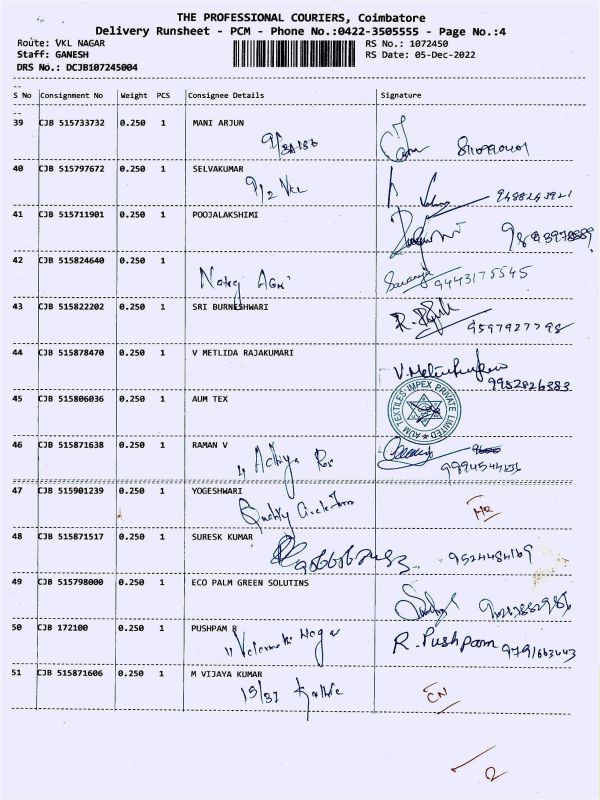 THE PROFESSIONAL COURIERS, Coimbatore
Delivery Runsheet - PCM - Phone No.:0422-3505555 - Page No.:4
Route: VKL NAGAR
RS No.: 1072450
Staff: GANESH
RS Date: 05-Dec-2022
DRS No.: DCJB107245004
S No Consignment No Weight PCS Consignee Details Signature
39 CJB 515733732 0.250 1 MANI ARJUN
40 CJB 515797672 0.250 1 SELVAKUMAR
9/2 VKL
41 CJB 515711901 0.250 1 POOJALAKSHMI
42 CJB 515824640 0.250 1
9443175545
43 CJB 515822202 0.250 1 SRI BURNESHWARI
9597927798
44 CJB 515878470 0.250 1 V METLIDA RAJAKUMARI
9952826383
45 CJB 515806036 0.250 1 AUM TEX
AUM TEXTILES IMPEX PRIVATE LIMITED
46 CJB 515871638 0.250 1 RAMAN V
47 CJB 515901239 0.250 1 YOGESHWARI
Quality
48 CJB 515871517 0.250 1 SURESK KUMAR
9524484169
49 CJB 515798000 0.250 1 ECO PALM GREEN SOLUTINS
50 CJB 172100 0.250 1 PUSHPAM R
R. Pushpam 9791663443
51 CJB 515871606 0.250 1 M VIJAYA KUMAR